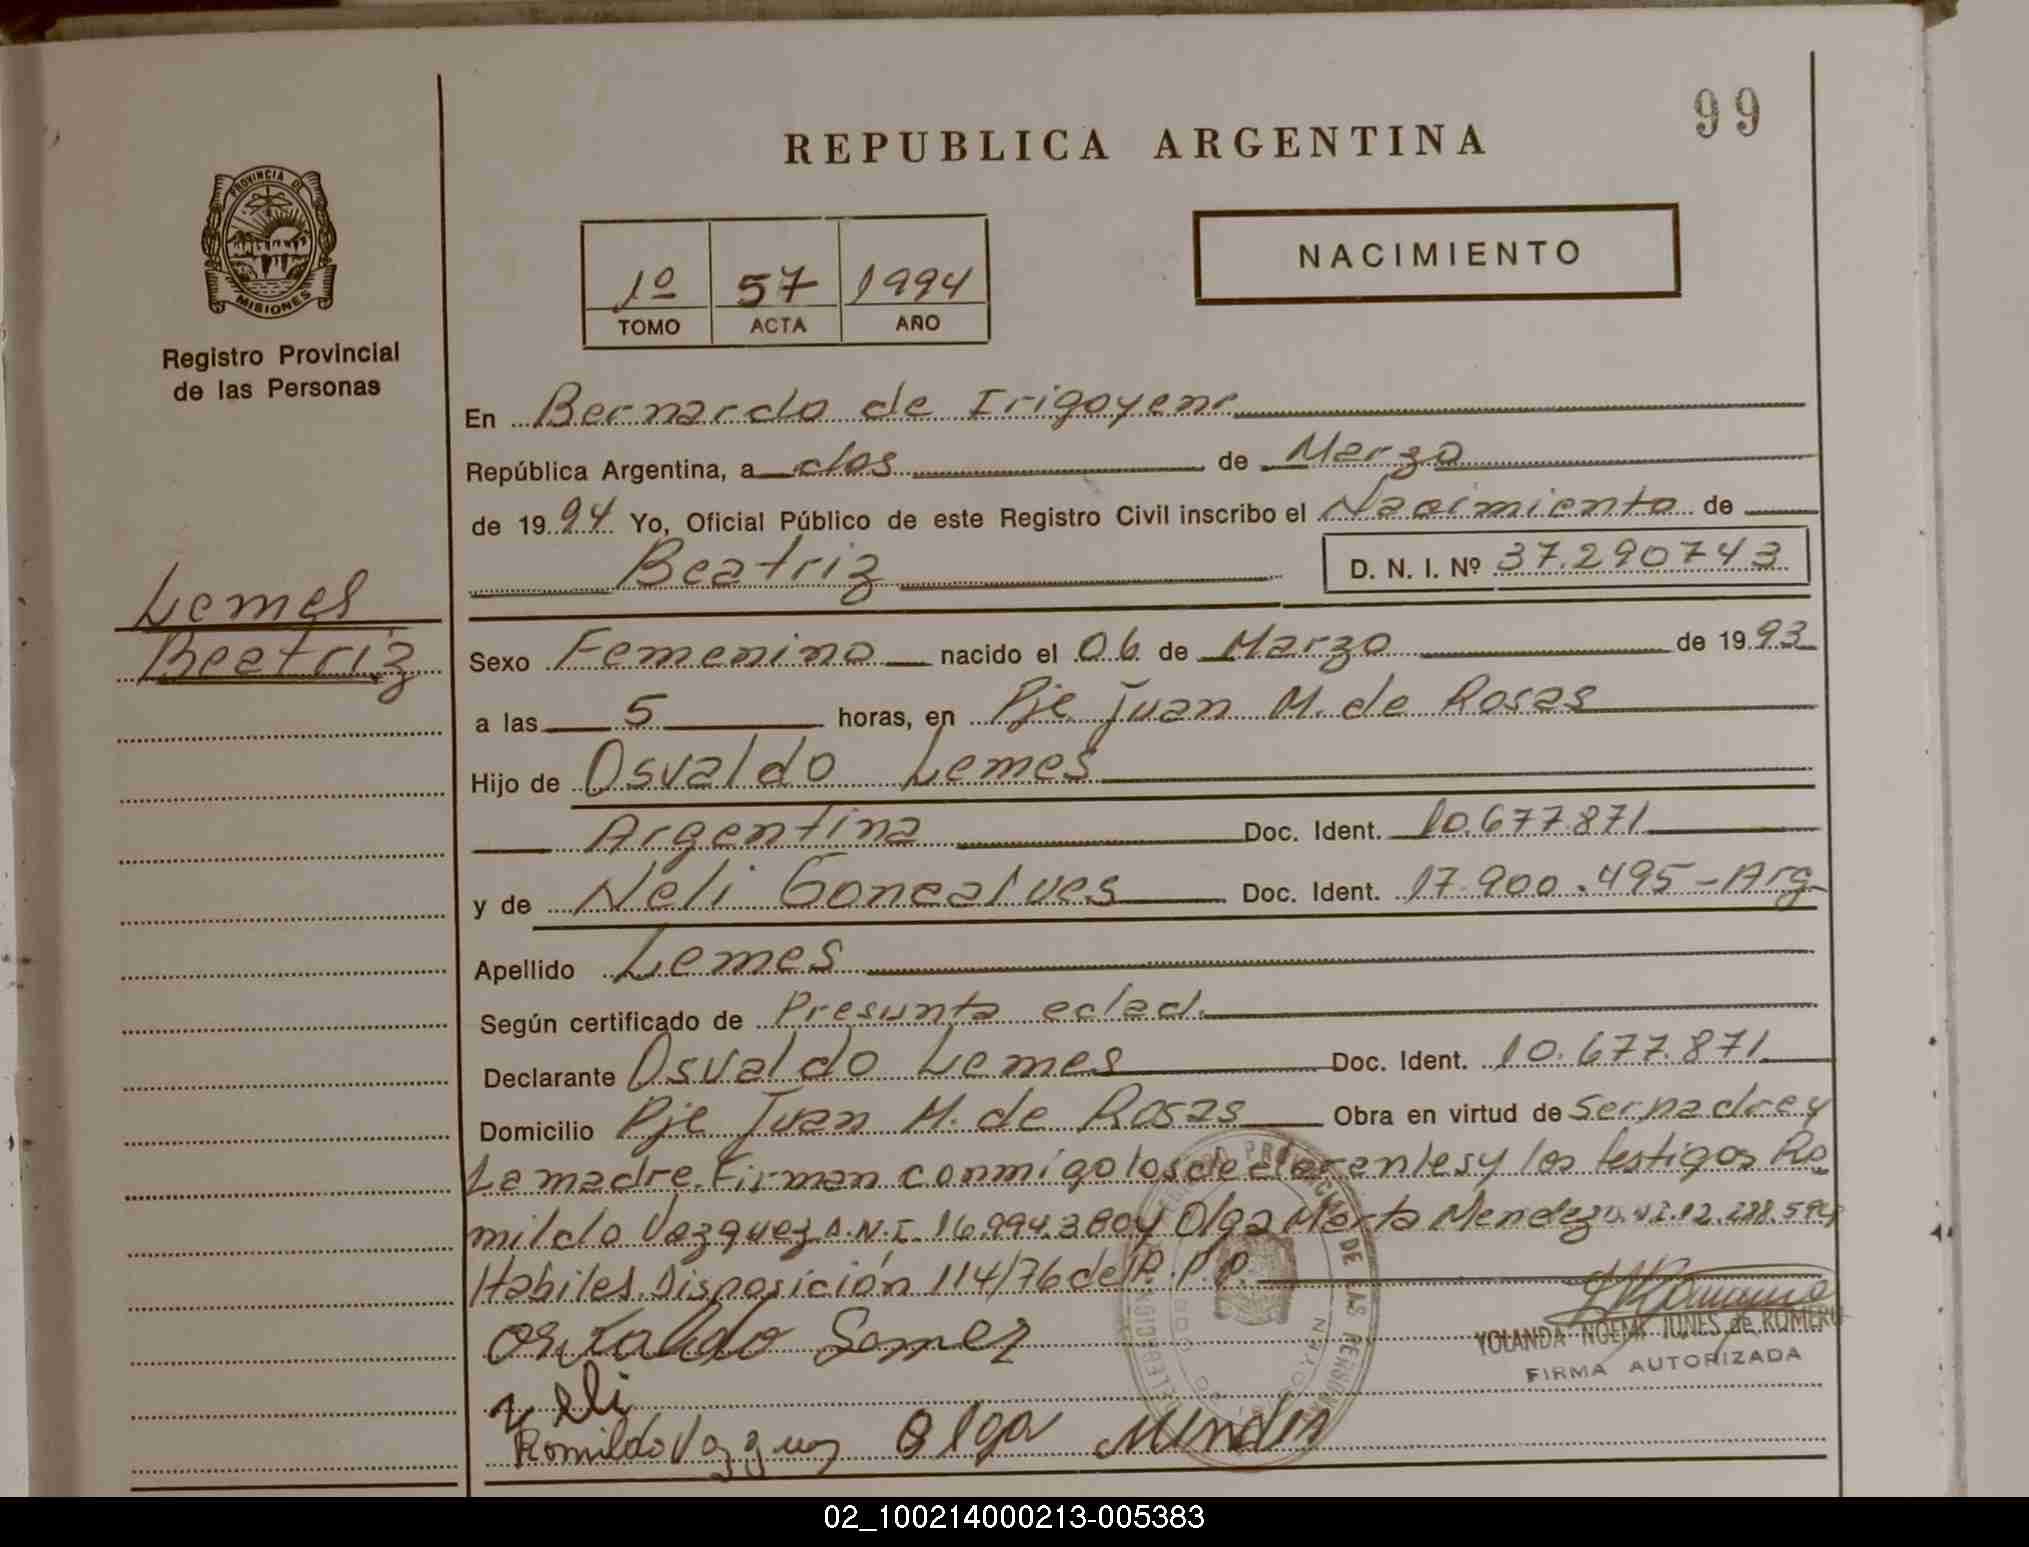 99
REPUBLICA ARGENTINA
PROVINCIA DE
MISIONES
Registro Provincial
de las Personas
1º 57 1994
TOMO ACTA AÑO
NACIMIENTO
En Bernardo de Irigoyen
República Argentina, a dos de Marzo
de 19 94 Yo, Oficial Público de este Registro Civil inscribo el Nacimiento de
Beatriz D. N. I. Nº 37.290743
Lemes
Beatriz
Sexo Femenino nacido el 06 de Marzo de 19 93
a las 5 horas, en Pje Juan M. de Rosas
Hijo de Osvaldo Lemes
Argentina Doc. Ident. 10.677.871
y de Neli Goncalves Doc. Ident. 17.900.495-Arg
Apellido Lemes
Según certificado de Presunta edad.
Declarante Osvaldo Lemes Doc. Ident. 10.677.871
Domicilio Pje Juan M. de Rosas Obra en virtud de Ser padre y
La madre. Firman conmigo los declarantes y los testigos Ro
mildo Vazquez D.N.I. 16.994.380 y Olga Marta Mendez
Habiles. Disposición 114/76 de R.P.P.
YOLANDA NOEMI de ROMERO
FIRMA AUTORIZADA
Neli
Romildo Vazquez Olga Mendes
02_100214000213-005383